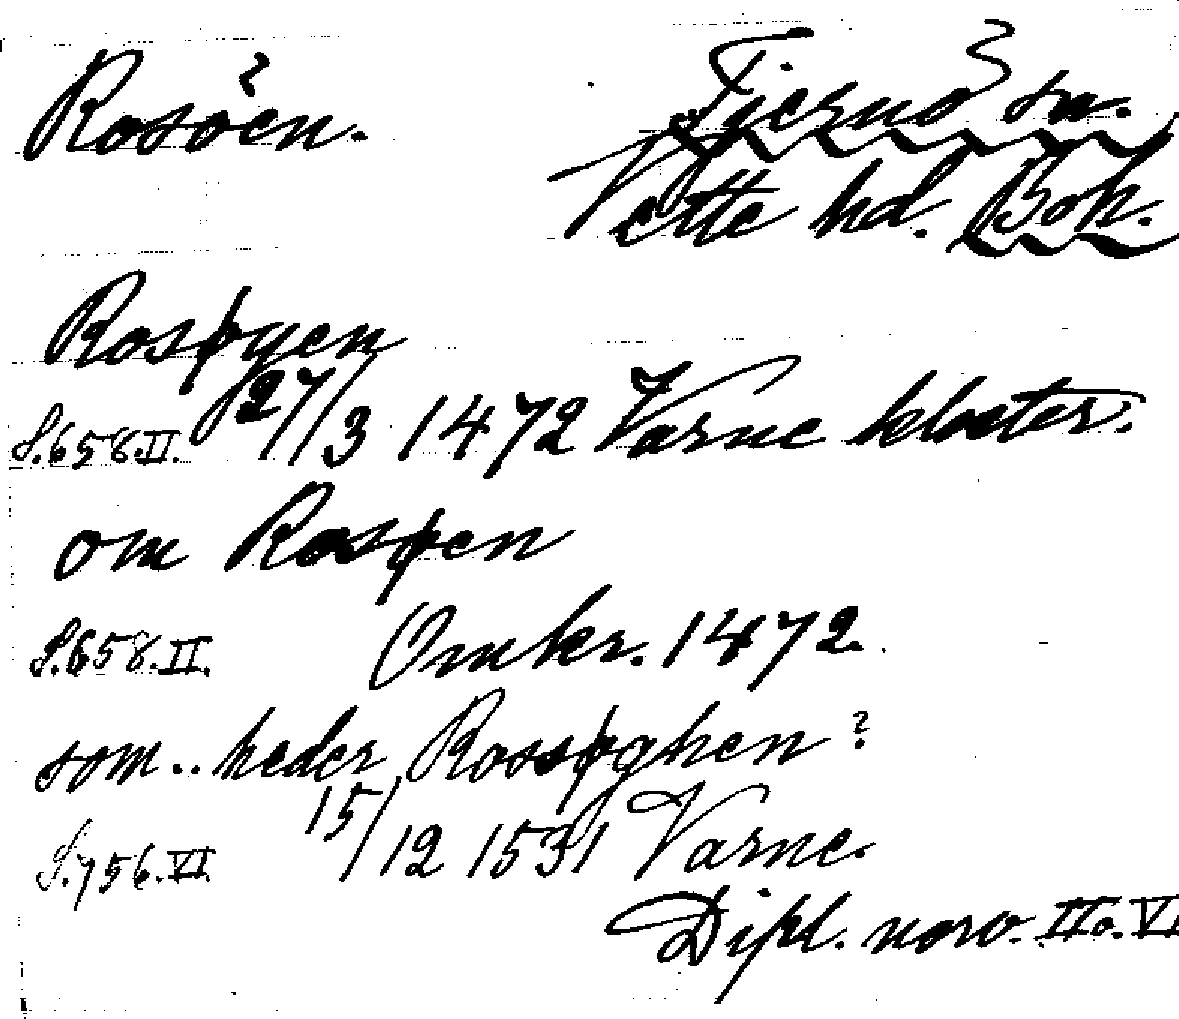 Rosöen. Tjernö sn.
Vette hd. Boh.
Rosøyen
S.658.II. 27/3 1472 Varne kloster.
om Rosøen
S.658.II. Omkr. 1472.
som.. heder Rossøghen?
S.756.VI. 15/12 1531 Varne.
Dipl. norv. II o. VI